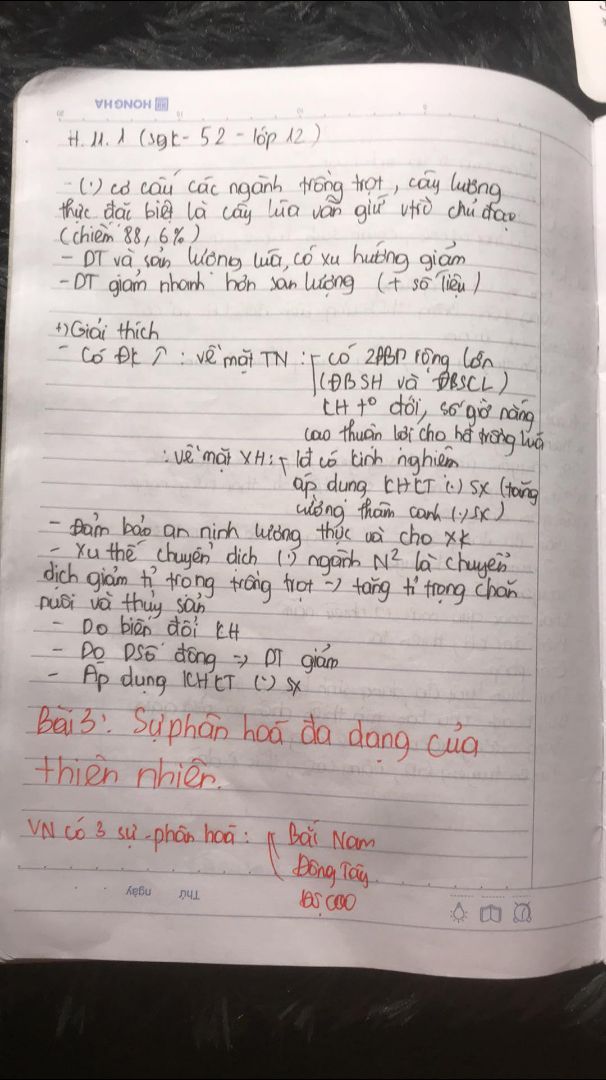 HONG HA
H.11.1 (sgk - 52 - lớp 12)
- (.) cơ cấu các ngành trồng trọt, cây lương
thực đặc biệt là cây lúa vẫn giữ vtrò chủ đạo
(chiếm 88,6%)
- DT và sản lượng lúa, có xu hướng giảm
- DT giảm nhanh hơn sản lượng (+ số liệu)
+) Giải thích
- Có ĐK ↗ : về mặt TN : - có 2ĐBP rộng lớn
(ĐBSH và ĐBSCL)
KH tº đới, số giờ nắng
cao thuận lợi cho hđ trồng lúa
: về mặt XH : - lđ có kinh nghiệm
áp dụng KHKT (.) SX (tăng
cường thâm canh (.) SX)
- Đảm bảo an ninh lương thực và cho XK
- Xu thế chuyển dịch (.) ngành N² là chuyển
dịch giảm tỉ trọng trồng trọt => tăng tỉ trọng chăn
nuôi và thủy sản
- Do biến đổi KH
- Do DSố đông => DT giảm
- Áp dụng KHKT (.) SX
Bài 3: Sự phân hoá đa dạng của
thiên nhiên.
VN có 3 sự phân hoá : Bắc Nam
Đông Tây
Đ, cao
Thứ ngày